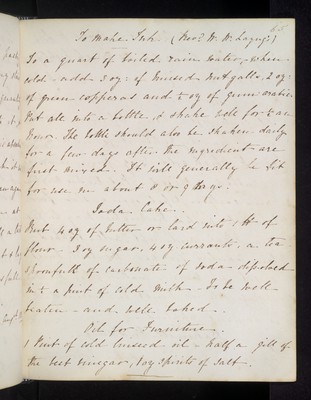 65
To make Ink. (Rev.d W. W.
To a quart of boiled rain water, when
cold - add 3 oz: of bruised nutgalls, 2 oz:
of green copperas and ½ oz of gum arabic.
Put all into a bottle, & shake well for ½ an
hour. The bottle should also be shaken daily
for a few days after the ingredients are
first mixed. It will generally be fit
for use in about 8 or 9 days.
Soda Cake.
Put 4 oz of butter or lard into 1 lb of
flour - 3 oz sugar, 4 oz currants, a tea
spoonfull of carbonate of soda dissolved
in ½ a pint of cold milk. To be well
beaten - and well baked.
Oil for Furniture.
1 Pint of cold linseed oil - half a gill of
the best vinegar, 1 oz spirits of salt.